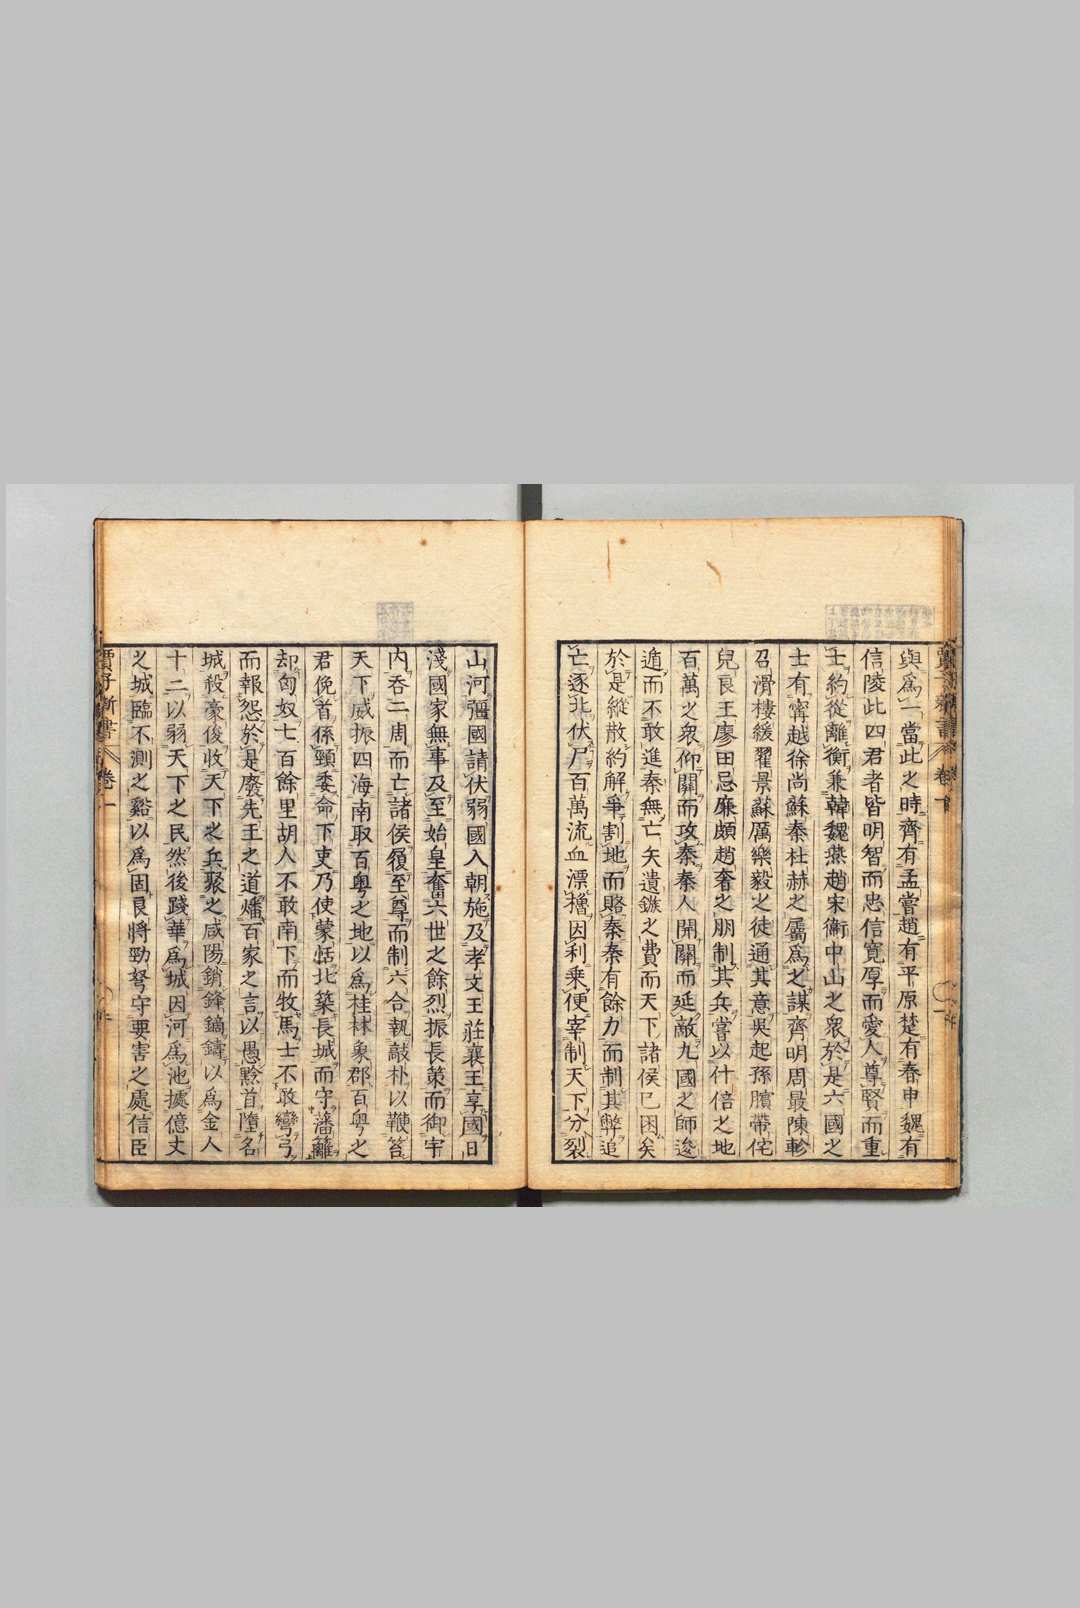 與爲一當此之時齊有孟嘗趙有平原楚有春申魏有
信陵此四君者皆明智而忠信寬厚而愛人尊賢而重
士約從離衡兼韓魏燕趙宋衛中山之衆於是六國之
士有甯越徐尚蘇秦杜赫之屬爲之謀齊明周最陳軫
召滑樓緩翟景蘇厲樂毅之徒通其意吳起孫臏帶佗
兒良王廖田忌廉頗趙奢之朋制其兵嘗以什倍之地
百萬之衆仰關而攻秦秦人開關而延敵九國之師逡
遁而不敢進秦無亡矢遺鏃之費而天下諸侯已困矣
於是縱散約解爭割地而賂秦秦有餘力而制其弊追
亡逐北伏尸百萬流血漂櫓因利乘便宰制天下分裂
山河彊國請伏弱國入朝施及孝文王莊襄王享國日
淺國家無事及至始皇奮六世之餘烈振長策而御宇
内吞二周而亡諸侯履至尊而制六合執敲朴以鞭笞
天下威振四海南取百粤之地以爲桂林象郡百粤之
君俛首係頸委命下吏乃使蒙恬北築長城而守藩籬
却匈奴七百餘里胡人不敢南下而牧馬士不敢彎弓
而報怨於是廢先王之道燔百家之言以愚黔首隳名
城殺豪俊收天下之兵聚之咸陽銷鋒鏑鑄以爲金人
十二以弱天下之民然後踐華爲城因河爲池據億丈
之城臨不測之谿以爲固良將勁弩守要害之處信臣
賈子新書 卷一